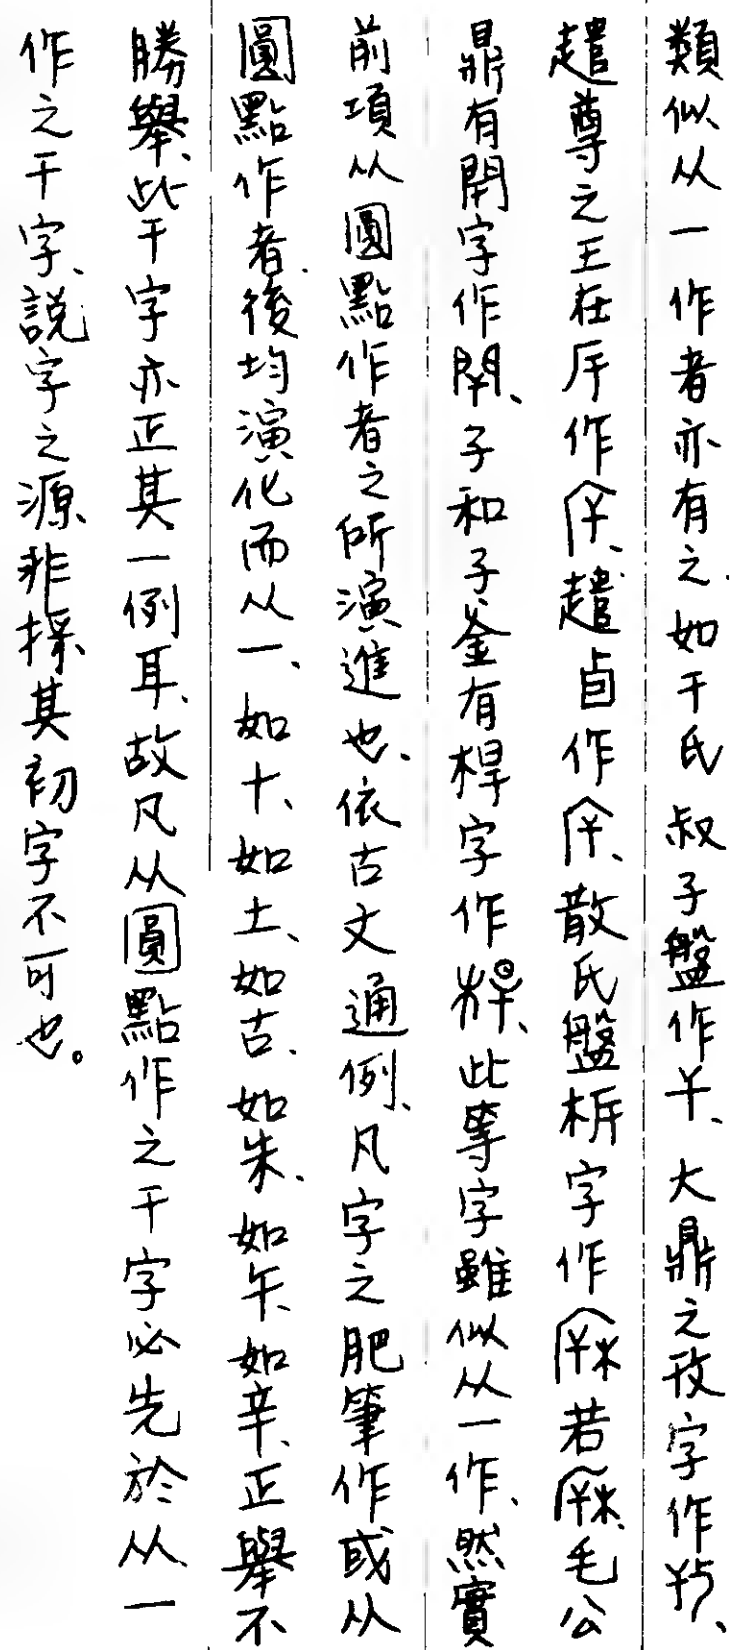 類似从一作者亦有之如干氏叔子盤作、大鼎之攼字作、
趞尊之王在厈作、趞卣作、散氏盤㭏字作若毛公
鼎有閈字作、子和子釜有桿字作、此等字雖似从一作、然實
前項从圓點作者之所演進也、依古文通例、凡字之肥筆作或从
圓點作者、後均演化而从一、如十、如土、如古、如朱、如午、如辛、正舉不
勝舉、此干字亦正其一例耳、故凡从圓點作之干字必先於从一
作之干字、説字之源、非採其初字不可也。